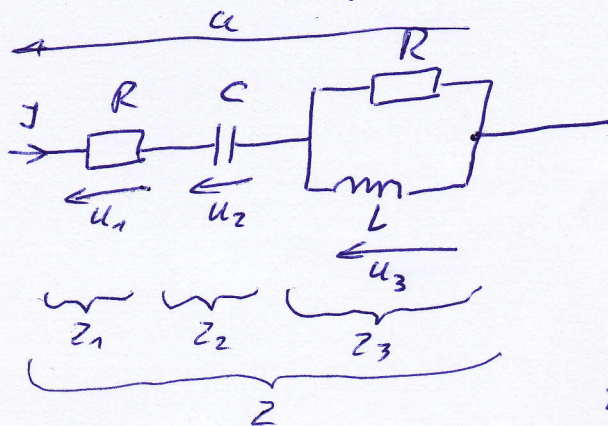 u
R
J R C
u1 u2 L
u3
Z1 Z2 Z3
Z